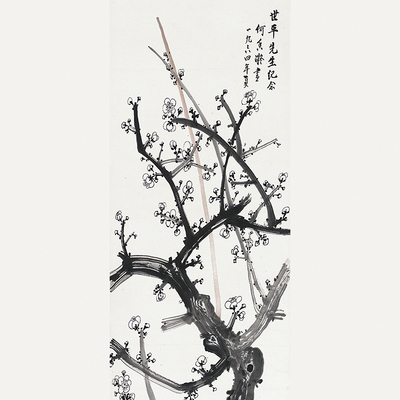 世平先生纪念
何香凝画
一九六四年夏